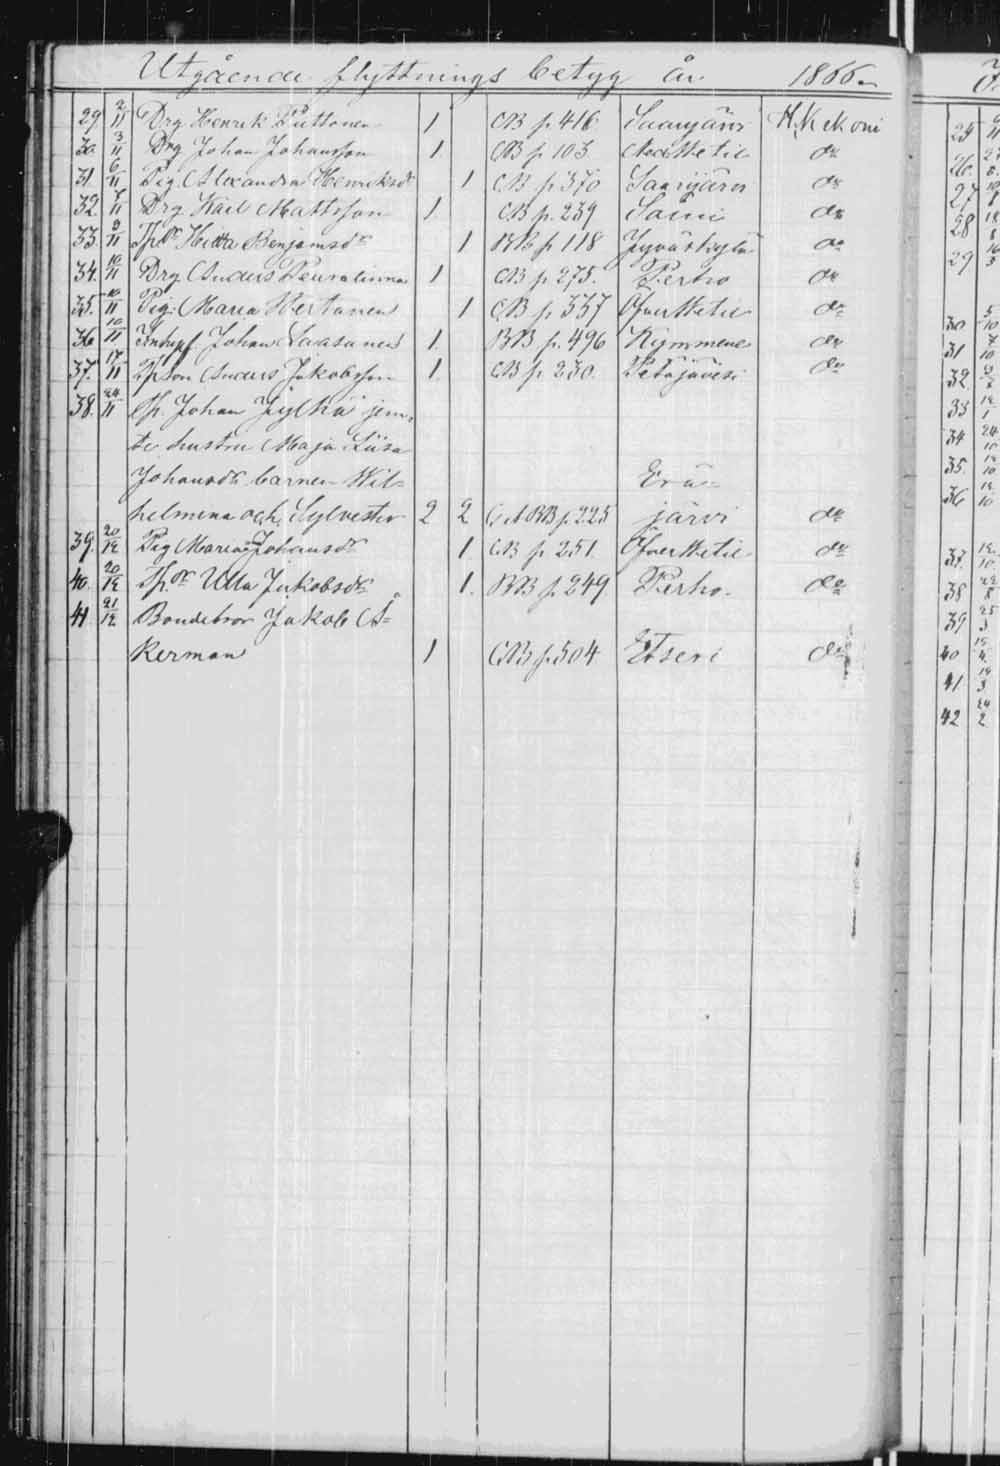 Utgående flyttnings betyg år 1866.
29 2/11 Drg Henrik Puttonen 1 CB p. 416 Saarijärvi H. Kekoni
30 3/11 Drg Johan Johansson 1 CB p 103 Nedervetil do
31. 6/11 Pig. Alexandra Henriksdr 1 CB p. 370 Saarijärvi do
32. 7/11 Drg Karl Mattsson 1. CB p. 239 Soini do
33. 9/11 Hetta Benjamsdr 1 p 118 Jyväskylä do
34. 10/11 Drg Anders Peuralinna 1 CB p 275. Perho do
35. 10/11 Pig. Maria Hertanen 1 CB p. 337 Öfvervetil do
36 10/11 Johan Saasanen 1. BB p. 496 Kymmene do
37. 17/11 Tpson Anders Jakobsson 1. CB p 230. Petäjävesi do
38. 24/11 Tp. Johan Jylhä jem-
te hustru Maja Liisa
Johansdr barnen Wil- Erä-
helmina och Sylvester 2 2 BB p. 225 järvi do
39. 20/12 Pig Maria Johansdr 1. CB p 251. Öfvervetil do
40. 20/12 Tp.dr Ulla Jakobsdr 1. BB p. 249 Perho. do
41. 21/12 Bondebror Jakob Å-
kerman 1 CB p. 504 Etseri do
25
26.
27
28
29
30
31
32.
33
34
35.
36
37.
38
39
40
41
42